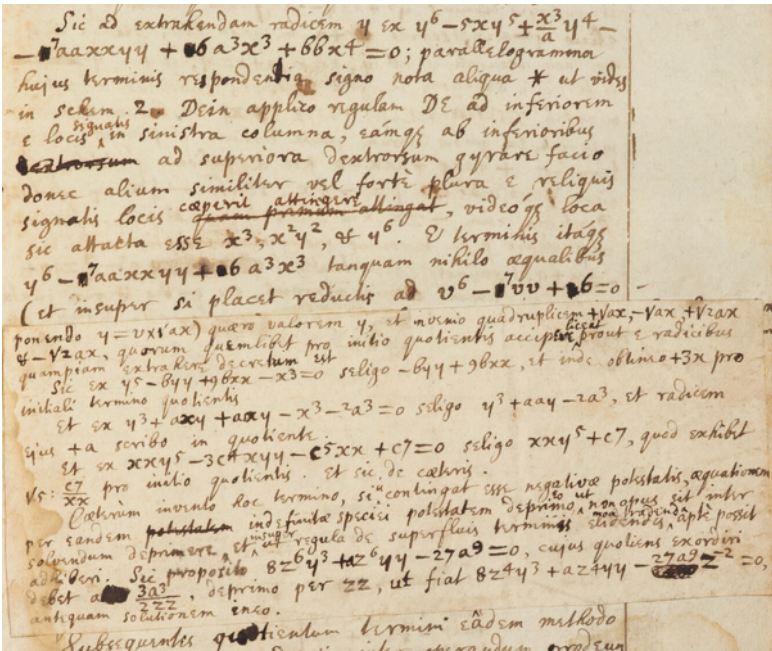 Sic ad extrahendam radicem y ex y⁶ − 5xy⁵ + x³/a y⁴ −
− 7aaxxyy + 6a³x³ + bbx4 = 0; parallelogramma
hujus terminis respondentia signo nota aliqua * ut vides
in schem. 2. Dein applico regulam DE ad inferiorem
e locis signatis in sinistra columna, eámqꝫ ab inferioribus
dextrorsum ad superiora dextrorsum gyrare facio
donec alium similiter vel fortè plura e reliquis
signatis locis cæperit attingere quam primum attingat, videóqꝫ loca
sic attacta esse x³, x²y², & y⁶. E terminis itáqꝫ
y⁶ − 7aaxxyy + 6a³x³ tanquam nihilo æqualibus
(et insuper si placet reductis ad v⁶ − 7vv + 6 = 0
ponendo y = v×√ax) quæro valorem y, et invenio quadruplicem +√ax, −√ax, +√2ax
& −√2ax, quorum quemlibet pro initio quotientis accipere liceat prout e radicibus
quampiam extrahere decretum est
Sic ex y⁵ − byy + 9bxx − x³ = 0 seligo − byy + 9bxx, et inde obtineo +3x pro
initiali termino quotientis
Et ex y³ + axy + aay − x³ − 2a³ = 0 seligo y³ + aay − 2a³, et radicem
ejus +a scribo in quotiente.
Et ex xxy⁵ − 3c4xyy − c⁵xx + c7 = 0 seligo xxy⁵ + c7, quod exhibet
√5: c7/xx pro initio quotientis. Et sic de cæteris.
Cæterùm invento hoc termino, si contingat esse negativæ potestatis, æquationem
per eandem potestatem indefinitæ speciei potestatem deprimo, eo ut non opus sit inter
solvendum deprimere, et insuper ut regula de superfluis terminis elidendis mox tradenda aptè possit
adhiberi. Sic proposito 8z⁶y³ + az⁶yy − 27a9 = 0, cujus quotiens exordiri
debet a 3a³/2zz, deprimo per zz, ut fiat 8z4y³ + az4yy − 27a9z⁻² = 0,
antequam solutionem ineo.
Subsequentes quotientum termini eâdem methodo